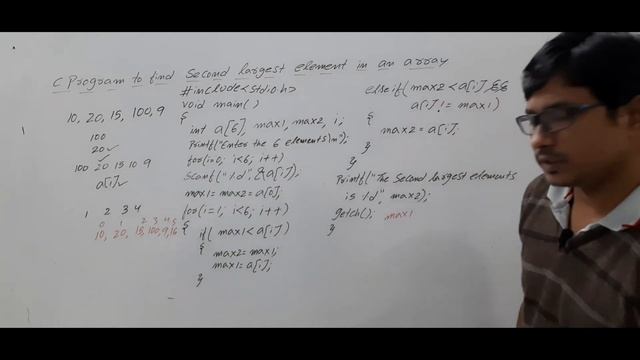 C Program to find Second largest element in an array
10, 20, 15, 100, 9
100
20 ✓
100 20 15 10 9
a[i] ✓
1 2 3 4
0 1 2 3 4 5
10, 20, 15, 100, 9, 16
1
#include<stdio.h>
void main()
{
int a[6], max1, max2, i;
Printf("Enter the 6 elements\n");
for(i=0; i<6; i++)
Scanf("%d", &a[i]);
max1=max2=a[0];
for(i=1; i<6; i++)
{
if(max1<a[i])
{
max2=max1;
max1=a[i];
}
else if(max2<a[i] &&
a[i]!=max1)
{
max2=a[i];
}
}
Printf("The Second largest elements
is %d", max2);
getch(); max1
}